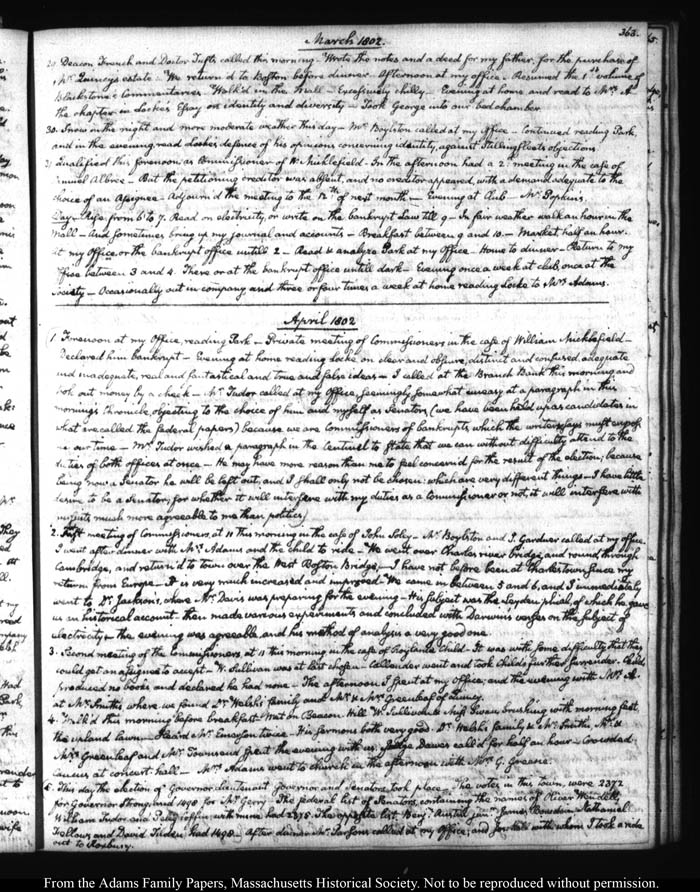 363.
March 1802.
29. Deacon French and Doctor Tufts called this morning. Wrote the notes and a deed for my father, for the purchase of
Mr. Quincy's estate. We return'd to Boston before dinner. Afternoon at my office. Resumed the 1st volume of
Blackstone's Commentaries. Walk'd in the Mall. Excessively chilly. Evening at home and read to Mrs. A
the chapter in Locke's Essay on identity and diversity. Took George into our bed chamber.
30. Snow in the night and more moderate weather this day. Mr. Boylston called at my Office. Continued reading Park,
and in the evening, read Locke's defence of his opinions concerning identity, against Stillingfleets objections.
31. Qualified this forenoon as Commissioner of W. Micklefield. In the afternoon had a 2d meeting in the case of
Samuel Albree. But the petitioning creditor was absent, and no creditor appeared, with a demand adequate to the
choice of an Assignee. Adjourn'd the meeting to the 12th of next month. Evening at Club. Mr. Popkins.
Day. Rise from 6 to 7. Read on electricity, or write on the bankrupt Law till 9. In fair weather walk an hour in the
Mall. And sometimes bring up my journal and accounts. Breakfast between 9 and 10. Market half an hour.
At my Office, or the bankrupt office untill 2. Read & analyze Park at my Office. Home to dinner. Return to my
Office between 3 and 4. There or at the bankrupt office untill dark. Evening once a week at club, once at the
Society. Occasionally out in company, and three or four times a week at home reading Locke to Mrs. Adams.
April 1802
1. Forenoon at my Office, reading Park. Private meeting of Commissioners in the case of William Micklefield.
Declared him bankrupt. Evening at home reading Locke, on clear and obscure, distinct and confused, adequate
and inadequate, real and fantastical and true and false ideas. I called at the Branch Bank this morning and
took out money by a check. Mr. Tudor called at my Office seemingly somewhat uneasy at a paragraph in this
morning's Chronicle, objecting to the choice of him and myself as Senators, (we have been held up as candidates in
what are called the federal papers) because we are Commissioners of bankrupts, which the writer says must engross
our time. Mr. Tudor wished a paragraph in the Centinel to state that we can without difficulty attend to the
duties of both offices at once. He may have more reason than me to feel concern'd for the result of the election; because
being now a Senator he will be left out, and I shall only not be chosen: which are very different things. I have little
desire to be a Senator, for whether it will interfere with my duties as a Commissioner or not, it will interfere with
pursuits much more agreeable to me than politics)
2. First meeting of Commissioners, at 11 this morning in the case of John Soley. Mr. Boylston and J. Gardner called at my office.
I went after dinner with Mrs. Adams and the child to ride. We went over Charles river bridge, and round through
Cambridge, and return'd to town over the West Boston Bridge. I have not before been at Charlestown since my
return from Europe. It is very much increased and improved. We came in between 5 and 6, and I immediately
went to Dr. Jackson's, where Mr. Davis was preparing for the evening. His subject was the Leyden phial, of which he gave
us an historical account. Then made various experiments and concluded with Darwin's verses on the subject of
electricity. The evening was agreeable, and his method of analysis a very good one.
3. Second meeting of the Commissioners, at 11 this morning in the case of Child. It was with some difficulty that they
could get an assignee to accept. W. Sullivan was at last chosen. Callender went and took Child's further surrender. Child
produced no books and declared he had none. The afternoon I spent at my office, and the evening with Mrs. A.
at Mr. Smith's, where we found Dr. Welsh's family and Mr. & Mrs. Greenleaf of Quincy.
4. Walk'd this morning before breakfast. Met on Beacon Hill W. Sullivan & Miss Gwen brushing with morning feet
the upland lawn. Heard Mr. Emerson twice. His sermons both very good. Dr. Welsh's family & Mr. Smith's, Mr. &
Mrs. Greenleaf and Mr. Townsend spent the evening with us. Judge Dawes call'd for half an hour. Crowded
Caucus at concert hall. Mrs. Adams went to church in the afternoon with Mrs. G. Greene.
5. This day the election of Governor lieutenant Governor and Senators took place. The votes in this town, were 2372
for Governor Strong and 1498 for Mr. Gerry. The federal list of Senators, containing the names of Oliver Wendell,
William Tudor and Peleg Coffin, with mine had 2375. The opposite list Benj: Austin junr. James Bowdoin Nathaniel
Fellows and David Tilden, had 1498. After dinner Mr. Parsons called at my Office; and for talk with whom I took a ride
out to Roxbury.
From the Adams Family Papers, Massachusetts Historical Society. Not to be reproduced without permission.